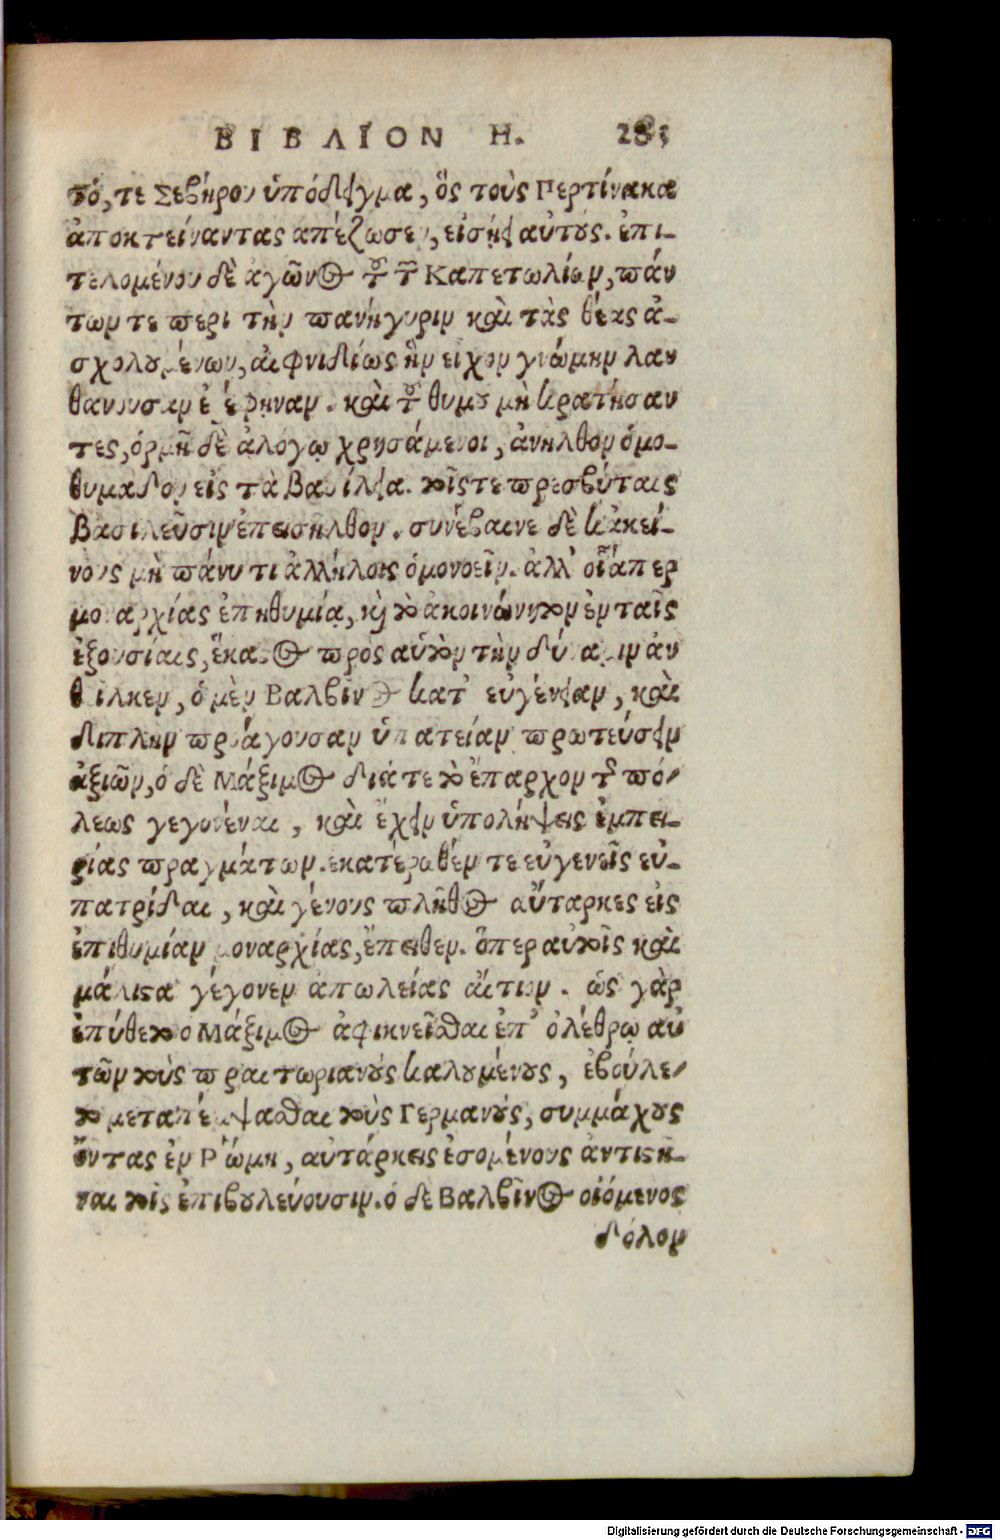 ΒΙΒΛΙΟΝ Η. 283
τό, τε Σεβήρου ὑπόδειγμα, ὃς τοὺς Περτίνακα
ἀποκτείναντας ἀπέζωσεν, εἰσῄει αὐτούς. ἐπι-
τελομένου δὲ ἀγῶνος τοῦ τῶν Καπετωλίων, πάν
των τε περι τὴν πανήγυριν καὶ τὰς θέας ἀ-
σχολουμένων, αἰφνιδίως ἣν εἶχον γνώμην λαν
θανουσαν ἐξέφηναν. καὶ τοῦ θυμοῦ μὴ κρατήσαν
τες, ὁρμῇ δὲ ἀλόγῳ χρησάμενοι, ἀνῆλθον ὁμο-
θυμαδον εἰς τὰ βασίλεια. τοῖς τε πρεσβύταις
βασιλεῦσιν ἐπεισῆλθον. συνέβαινε δὲ κἀκεί-
νους μὴ πάνυ τι ἀλλήλοις ὁμονοεῖν. ἀλλ' οἷάπερ
μοναρχίας ἐπηθυμία, καὶ τὸ ἀκοινώνητον ἐν ταῖς
ἐξουσίαις, ἕκαστος πρὸς αὑτὸν τὴν δύναμιν ἀν
θεῖλκεν, ὁ μὲν Βαλβῖνος κατ' εὐγένειαν, καὶ
διπλῆν προάγουσαν ὑπατείαν πρωτεύειν
ἀξιῶν, ὁ δὲ Μάξιμος διά τε τὸ ἔπαρχον τῆς πό-
λεως γεγονέναι, καὶ ἔχειν ὑπολήψεις ἐμπει-
ρίας πραγμάτων. ἑκατέρωθέν τε εὐγενεῖς εὐ-
πατρίδαι, καὶ γένους πλῆθος αὔταρκες εἰς
ἐπιθυμίαν μοναρχίας, ἔπειθεν. ὅπερ αὐτοῖς καὶ
μάλιστα γέγονεν ἀπωλείας αἴτιον. ὡς γὰρ
ἐπύθετο ὁ Μάξιμος ἀφικνεῖσθαι ἐπ' ὀλέθρῳ αὐ
τῶν τοὺς πραιτωριανοὺς καλουμένους, ἐβούλε-
το μεταπέμψασθαι τοὺς Γερμανούς, συμμάχους
ὄντας ἐν Ῥώμη, αὐτάρκεις ἐσομένους ἀντιστῆ-
ναι τοῖς ἐπιβουλεύουσιν. ὁ δὲ Βαλβῖνος οἰόμενος
δόλον
Digitalisierung gefördert durch die Deutsche Forschungsgemeinschaft - DFG